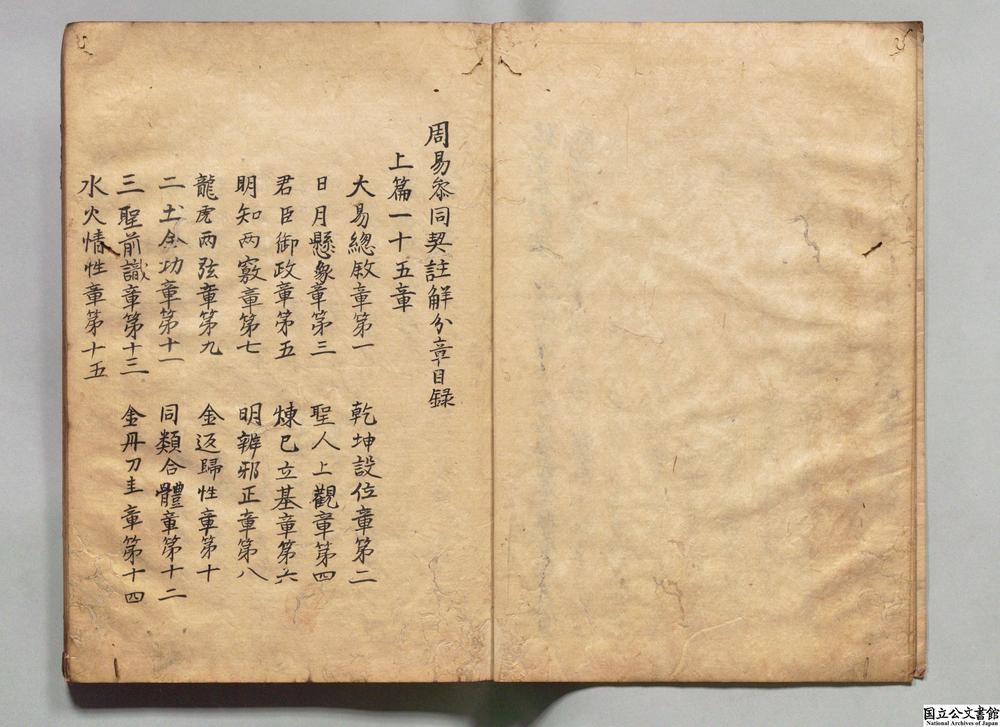 周易叅同契註解分章目録
上篇一十五章
大易總敘章第一　乾坤設位章第二
日月懸象章第三　聖人上觀章第四
君臣御政章第五　煉己立基章第六
明知两竅章第七　明辨邪正章第八
龍虎两弦章第九　金返歸性章第十
二土全功章第十一　同類合體章第十二
三聖前識章第十三　金丹刀圭章第十四
水火情性章第十五
国立公文書館
National Archives of Japan